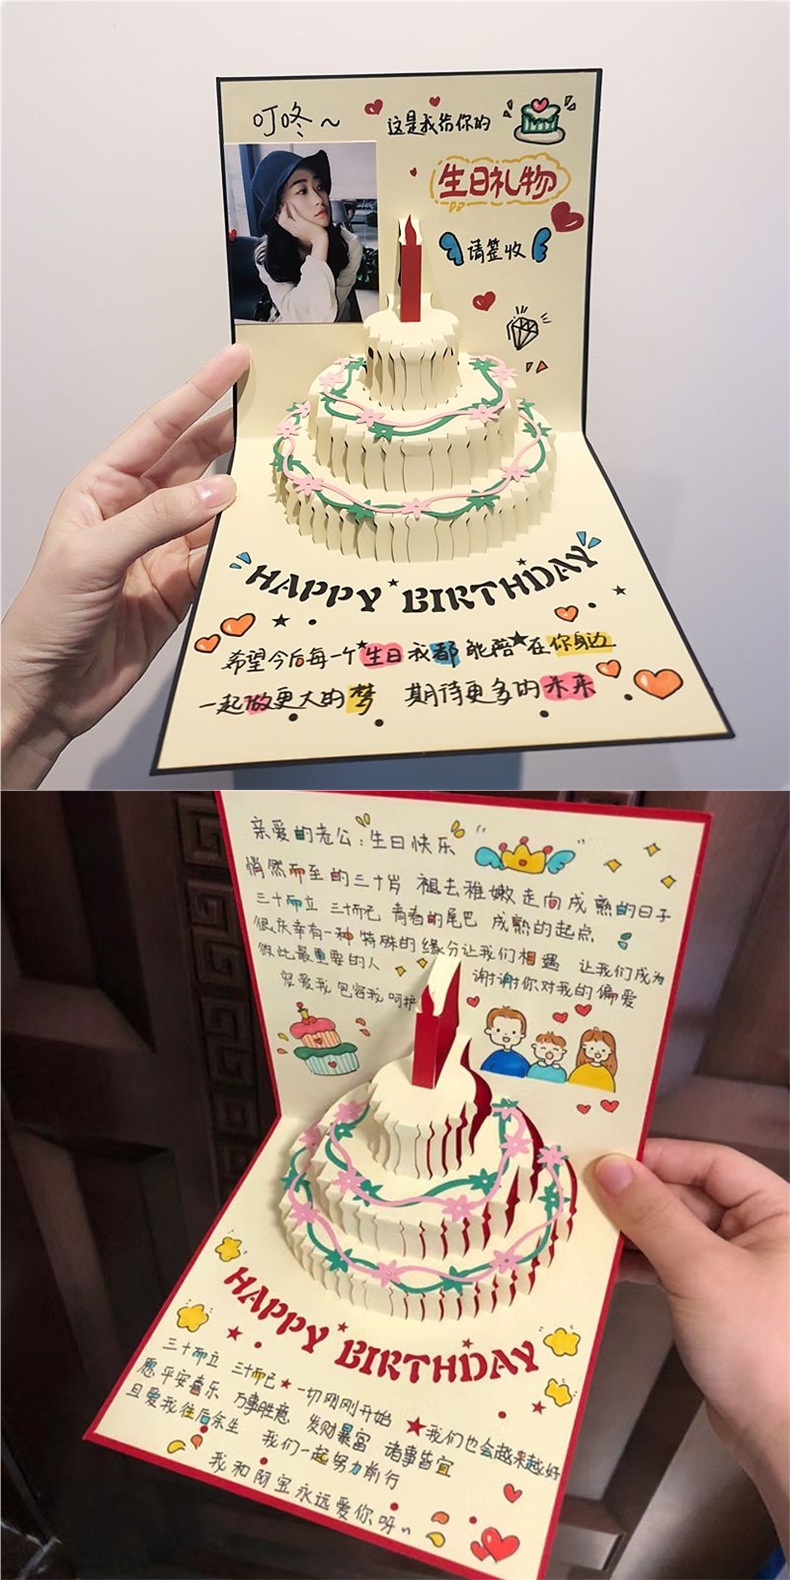 叮咚~
这是我给你的
生日礼物
请签收
HAPPY BIRTHDAY
希望今后每一个生日我都能陪在你身边
一起做更大的梦 期待更多的未来
亲爱的老公:生日快乐
悄然而至的三十岁 褪去稚嫩走向成熟的日子
三十而立 三十而已 青春的尾巴 成熟的起点
很庆幸有一种特殊的缘分让我们相遇 让我们成为
彼此最重要的人 谢谢你对我的偏爱
宠爱我 包容我 呵护
HAPPY BIRTHDAY
三十而立 三十而已 一切刚刚开始 我们也会越来越好
愿平安喜乐 万事胜意 发财暴富 诸事皆宜
且爱我往后余生 我们一起努力前行
我和阿宝永远爱你呀~